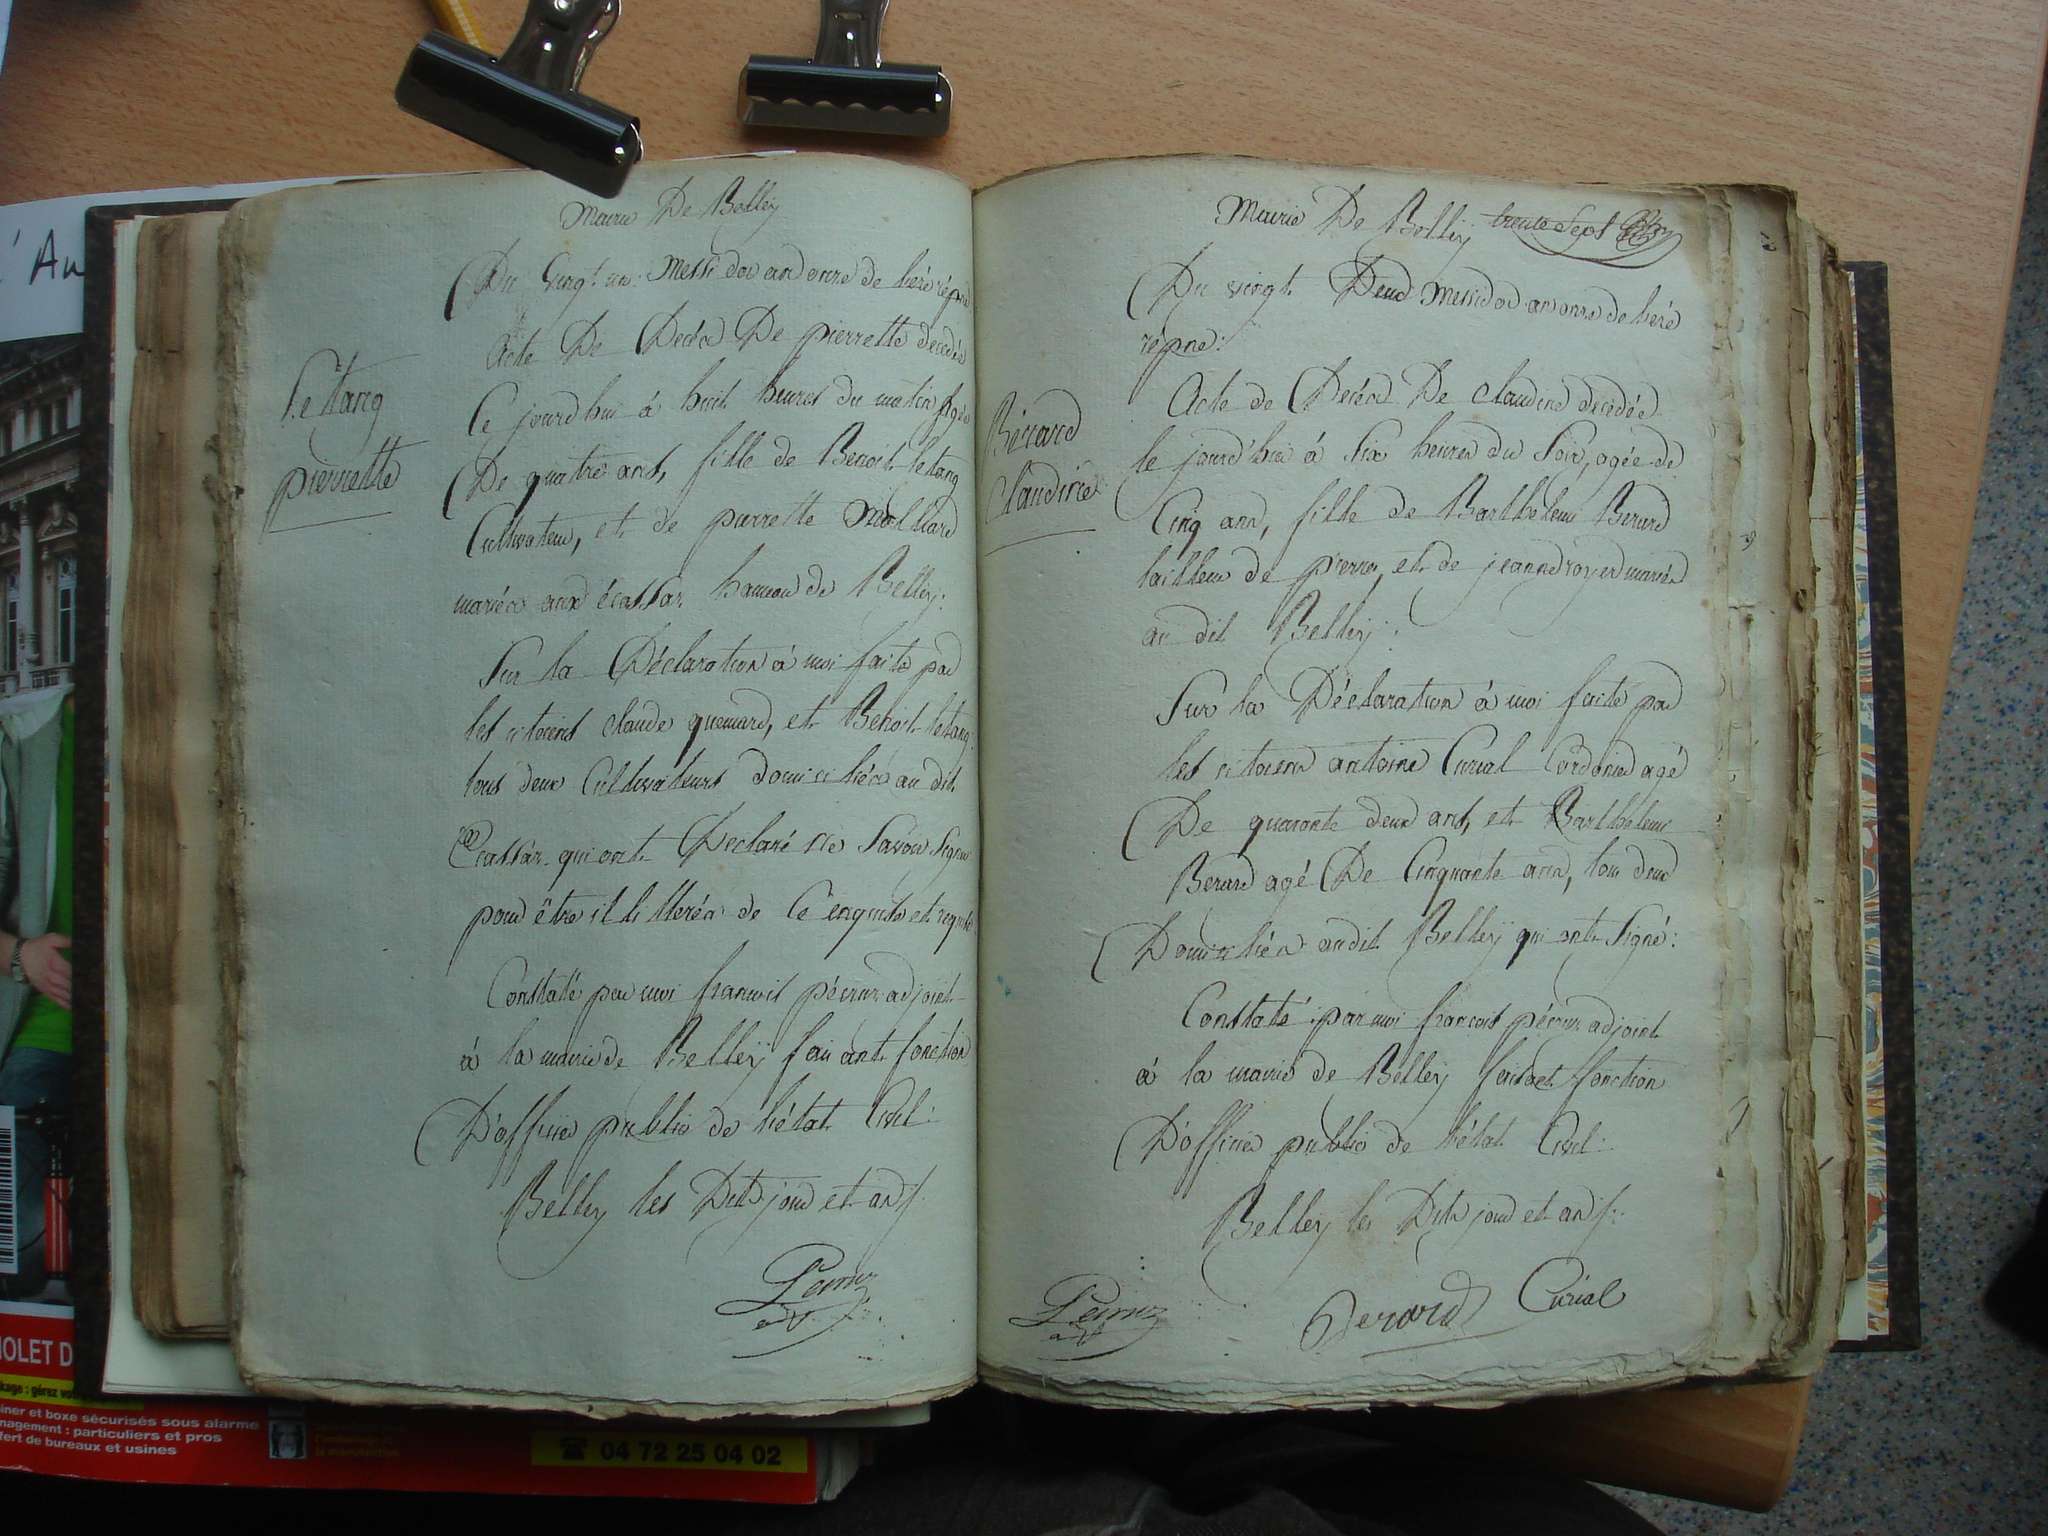 Mairie De Belley
Du vingt un Messidor an onze de l'ére répne
Acte De Decés De pierrette decedée
Ce jourd'hui à huit heures du matin Agée
De quatre ans, fille de Benoit letang
Cultivateur, et de pierrette
mariés aux écassaz hameau de Belley:
Sur la Déclaration à moi faite par
les citoiens Claude quemard, et Benoit letang
tous deux Cultivateurs domiciliés au dit
Ecassaz qui ont Declaré ne Savoir Signer
pour être illitterés de ce enquis et requis
Constaté par moi francois adjoint
à la mairie de Belley faisant fonction
D'officier public de l'état Civil:
Belley les Dits jour et an
Letang
pierrette
Mairie De Belley trente Sept
Du vingt Deux Messidor an onze de l'ére
répne:
Acte de Decés De Claudine decédée
le jourd'hui à Six heures du Soir, agée de
Cinq ans, fille de Barthelemi Berard
tailleur de pierres, et de jeanne royer mariés
au dit Belley:
Sur la Déclaration à moi faite par
les citoiens antoine Curial Cordonier agé
De quarante deux ans, et Barthelemi
Berard agé De Cinquante ans, tous deux
Domiciliés audit Belley qui ont Signé:
Constaté par moi francois adjoint
à la mairie de Belley faisant fonction
D'officier public de l'état Civil:
Belley les Dits jour et an
Berard Curial
Bérard
Claudine
' Au
IOLET D
kage : gérez vot
iner et boxe sécurisés sous alarme
nagement : particuliers et pros
fert de bureaux et usines
04 72 25 04 02